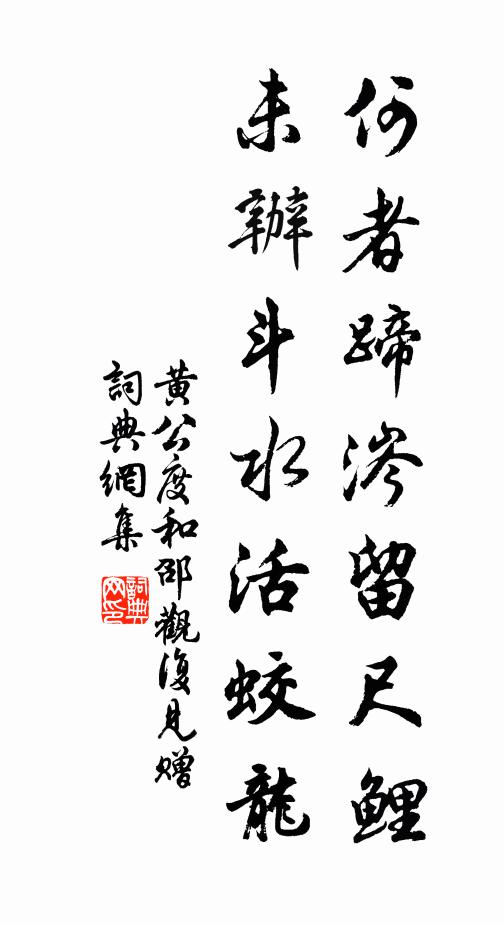 何者蹄涔留尺鲤
未辦斗水活蛟龍
黃公度和邵觀復見贈
詞典網集
詞典
网印